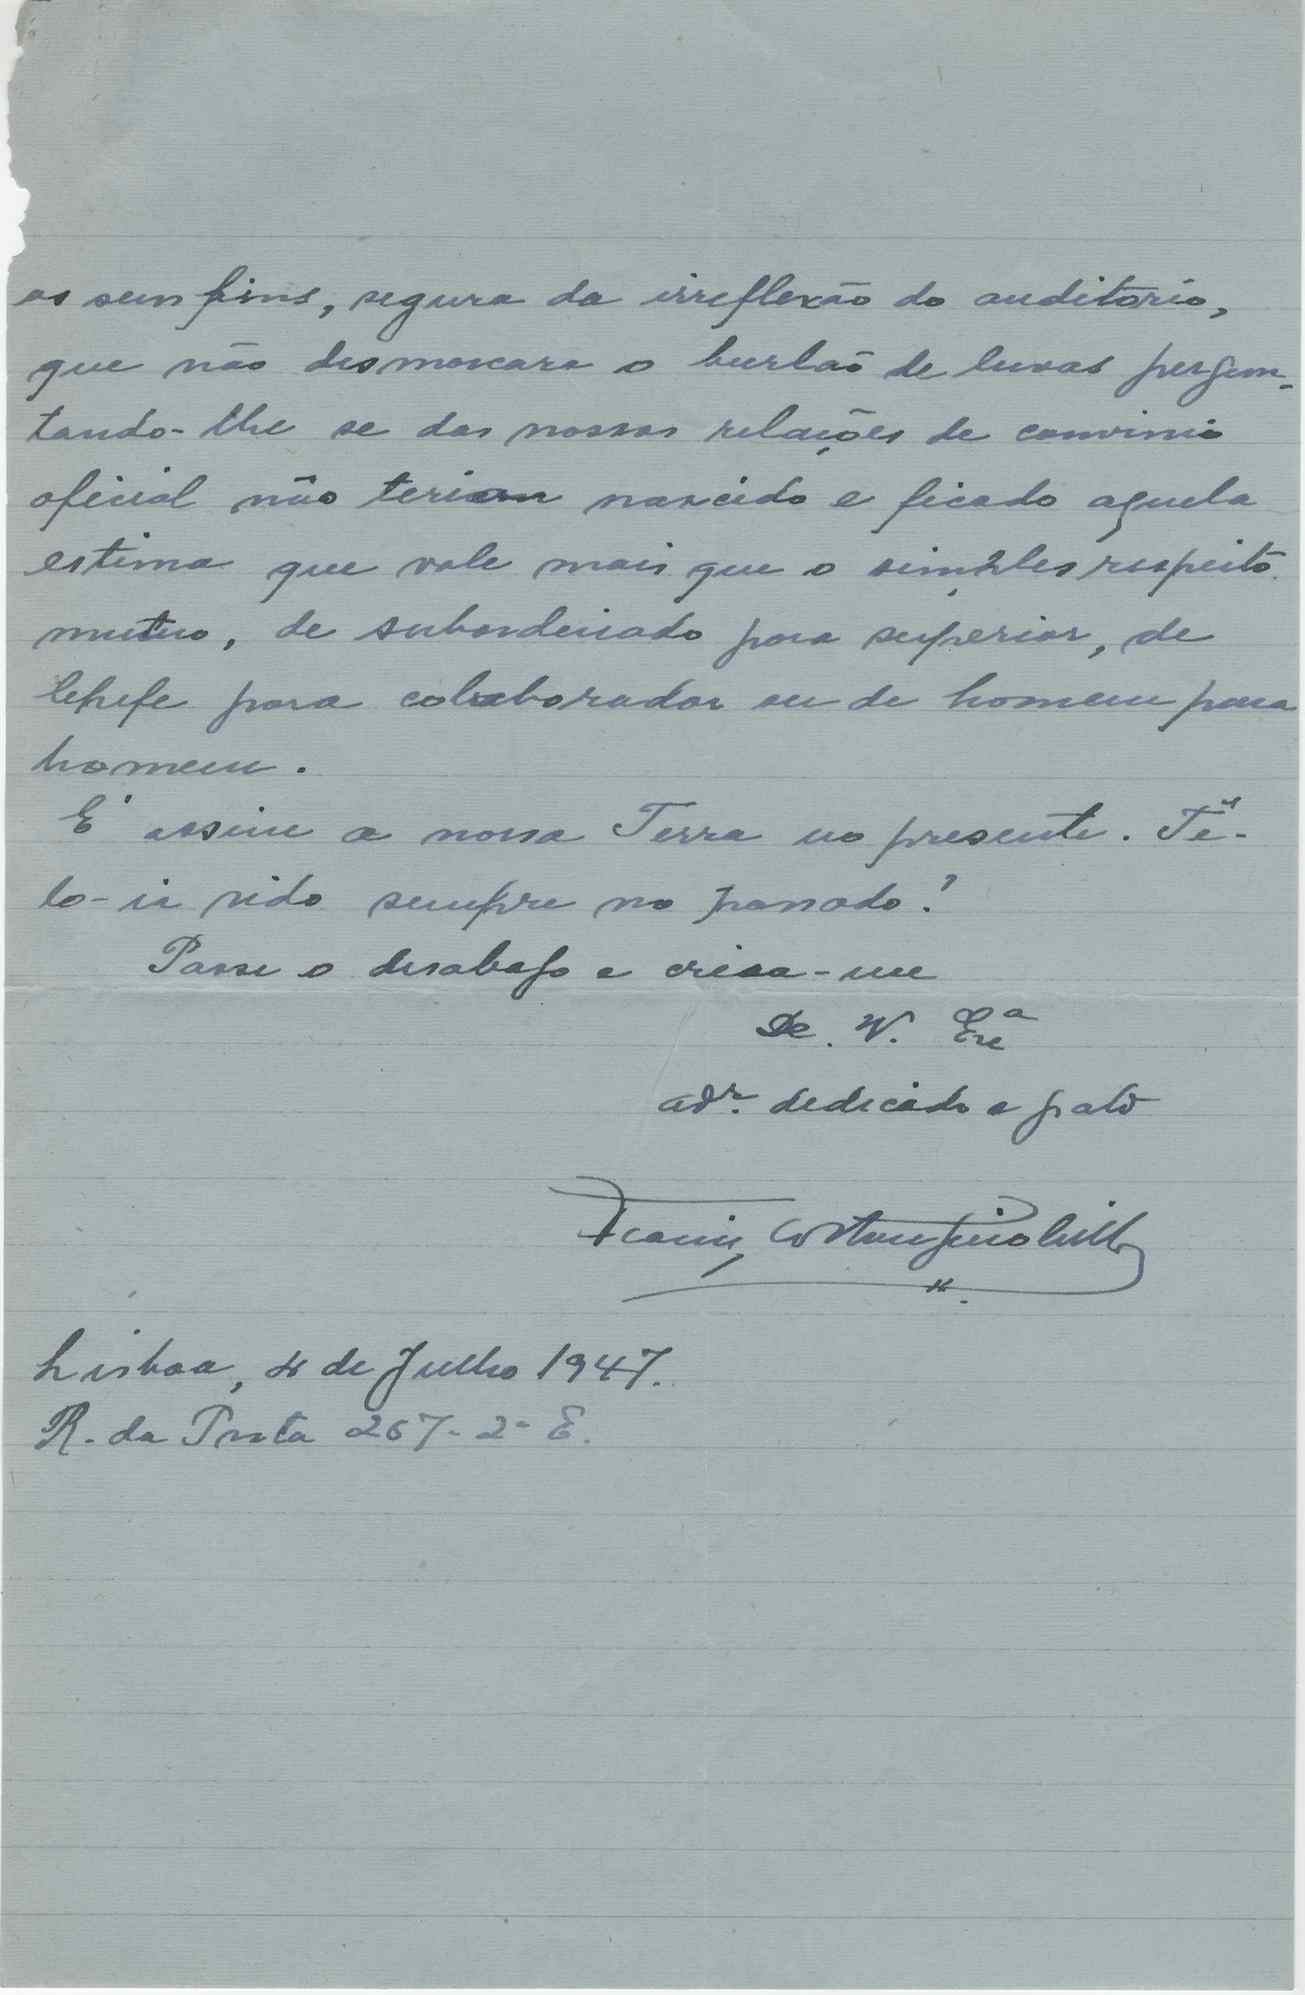 os seus fins, segura da irreflexão do auditório,
que não desmascara o burlão de luvas pergun-
tando-lhe se das nossas relações de convivio
oficial não teriam nascido e ficado aquela
estima que vale mais que o simples respeito
mutuo, de subordinado para superior, de
chefe para colaborador ou de homem para
homem.
É assim a nossa Terra no presente. Tê-
lo-ia sido sempre no passado?
Passe o desabafo e creia-me
De. V. Exª
adr. dedicado e grato
Costa
Lisboa, 4 de Julho 1947.
R. da Prata 267-2º E.